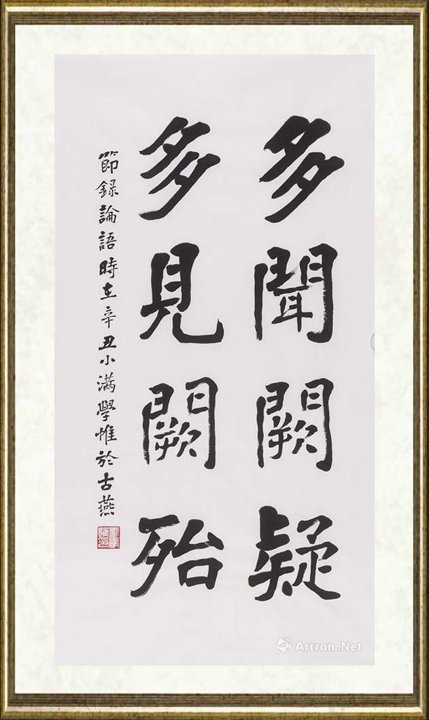 多聞闕疑
多見闕殆
節録論語時在辛丑小滿學惟於古燕
Artron.Net